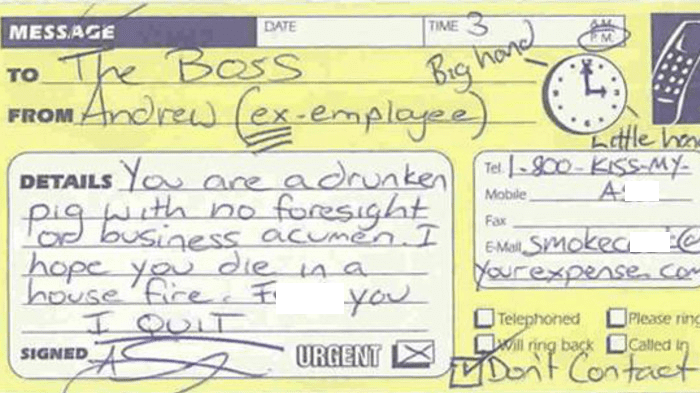 MESSAGE DATE TIME 3 A.M.
P.M.
TO The Boss
Big hand
FROM Andrew (ex-employee)
Little han
DETAILS You are a drunken
pig with no foresight
or business acumen. I
hope you die in a
house fire. F you
I QUIT
SIGNED AS URGENT
Tel. 1-800-KISS-MY-
Mobile A
Fax
E-Mail smokec @
yourexpense.com
Telephoned Please ring
Will ring back Called in
Don't Contact